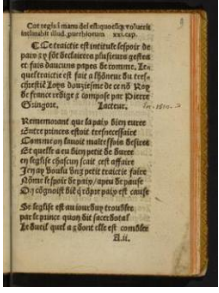 Cor regis in manu dei est quocũq; voluerit
inclinabit illud. puerbiorum xxi.cap.
Ce traictie est intitule lespoir de
paix & y sõt declairees plusieurs gestes
et faiz daucuns papes de romme. Le
quel traictie est fait a lhõneur du tres
chrestiẽ Loys douziesme de ce nõ Roy
de france redige & compose par Pierre
Gringore. Lacteur.
Rememorant que la paix bien euree
Entre princes estoit tresnecessaire
Commun lauoit maltefsoin desiree
Et quelle a eu bien petit de duree
en leglise chascun scait cest affaire
Jen ay voulu ung petit traictie faire
Nõme lespoir de paix / a peu de pause
Ou cõgnoist bie q rõpt paix est cause
Se leglise est au iourdhuy troublee
par le prince quon dit sacerdotal
Lequel a dont elle est comblee
A.ii.